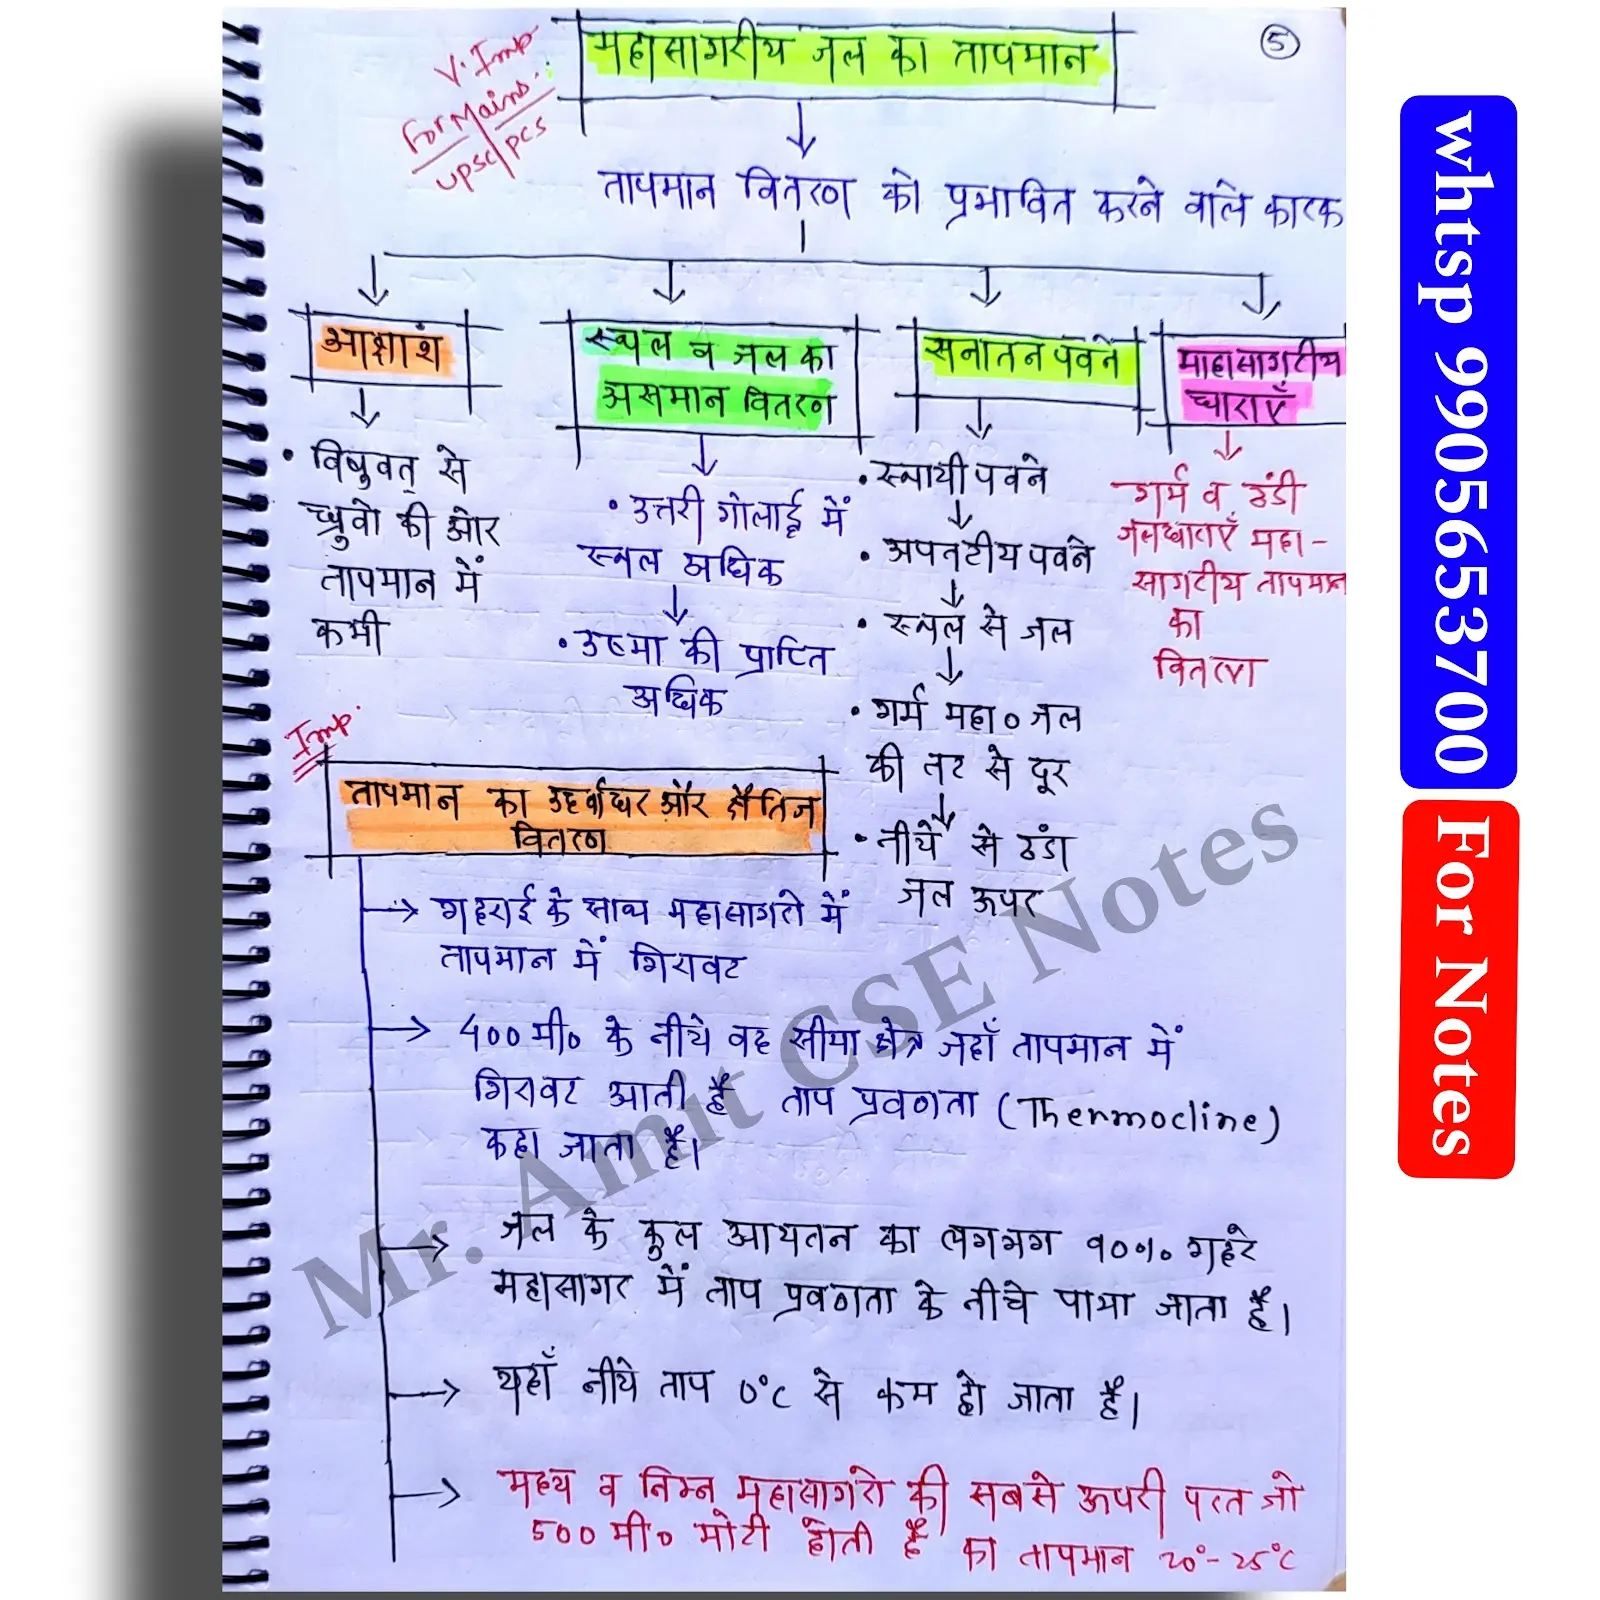 महासागरीय जल का तापमान
5
V. Imp
For Mains
upsc/pcs
तापमान वितरण को प्रभावित करने वाले कारक
आक्षांश
• विषुवत् से
ध्रुवो की ओर
तापमान में
कमी
स्थल व जल का
असमान वितरण
• उत्तरी गोलार्द्ध में
स्थल अधिक
• उष्मा की प्राप्ति
अधिक
सनातन पवने
• स्थायी पवने
• अपतटीय पवने
• स्थल से जल
• गर्म महा० जल
की तट से दूर
• नीचे से ठंडा
जल ऊपर
माहासागरीय
धाराएँ
गर्म व ठंडी
जलधाराएँ महा-
सागरीय तापमान
का
वितरण
Imp.
तापमान का उर्ध्वाधर और क्षैतिज
वितरण
→ गहराई के साथ महासागरो में
तापमान में गिरावट
→ 400 मी० के नीचे वह सीमा क्षेत्र जहाँ तापमान में
गिरावट आती है ताप प्रवणता (Thermocline)
कहा जाता है।
→ जल के कुल आयतन का लगभग 90% गहरे
महासागर में ताप प्रवणता के नीचे पाया जाता है।
→ यहाँ नीचे ताप 0°C से कम हो जाता है।
→ मध्य व निम्न महासागरो की सबसे ऊपरी परत जो
500 मी० मोटी होती है का तापमान 20°-25°C
Mr. Amit CSE Notes
whtsp 9905653700
For Notes